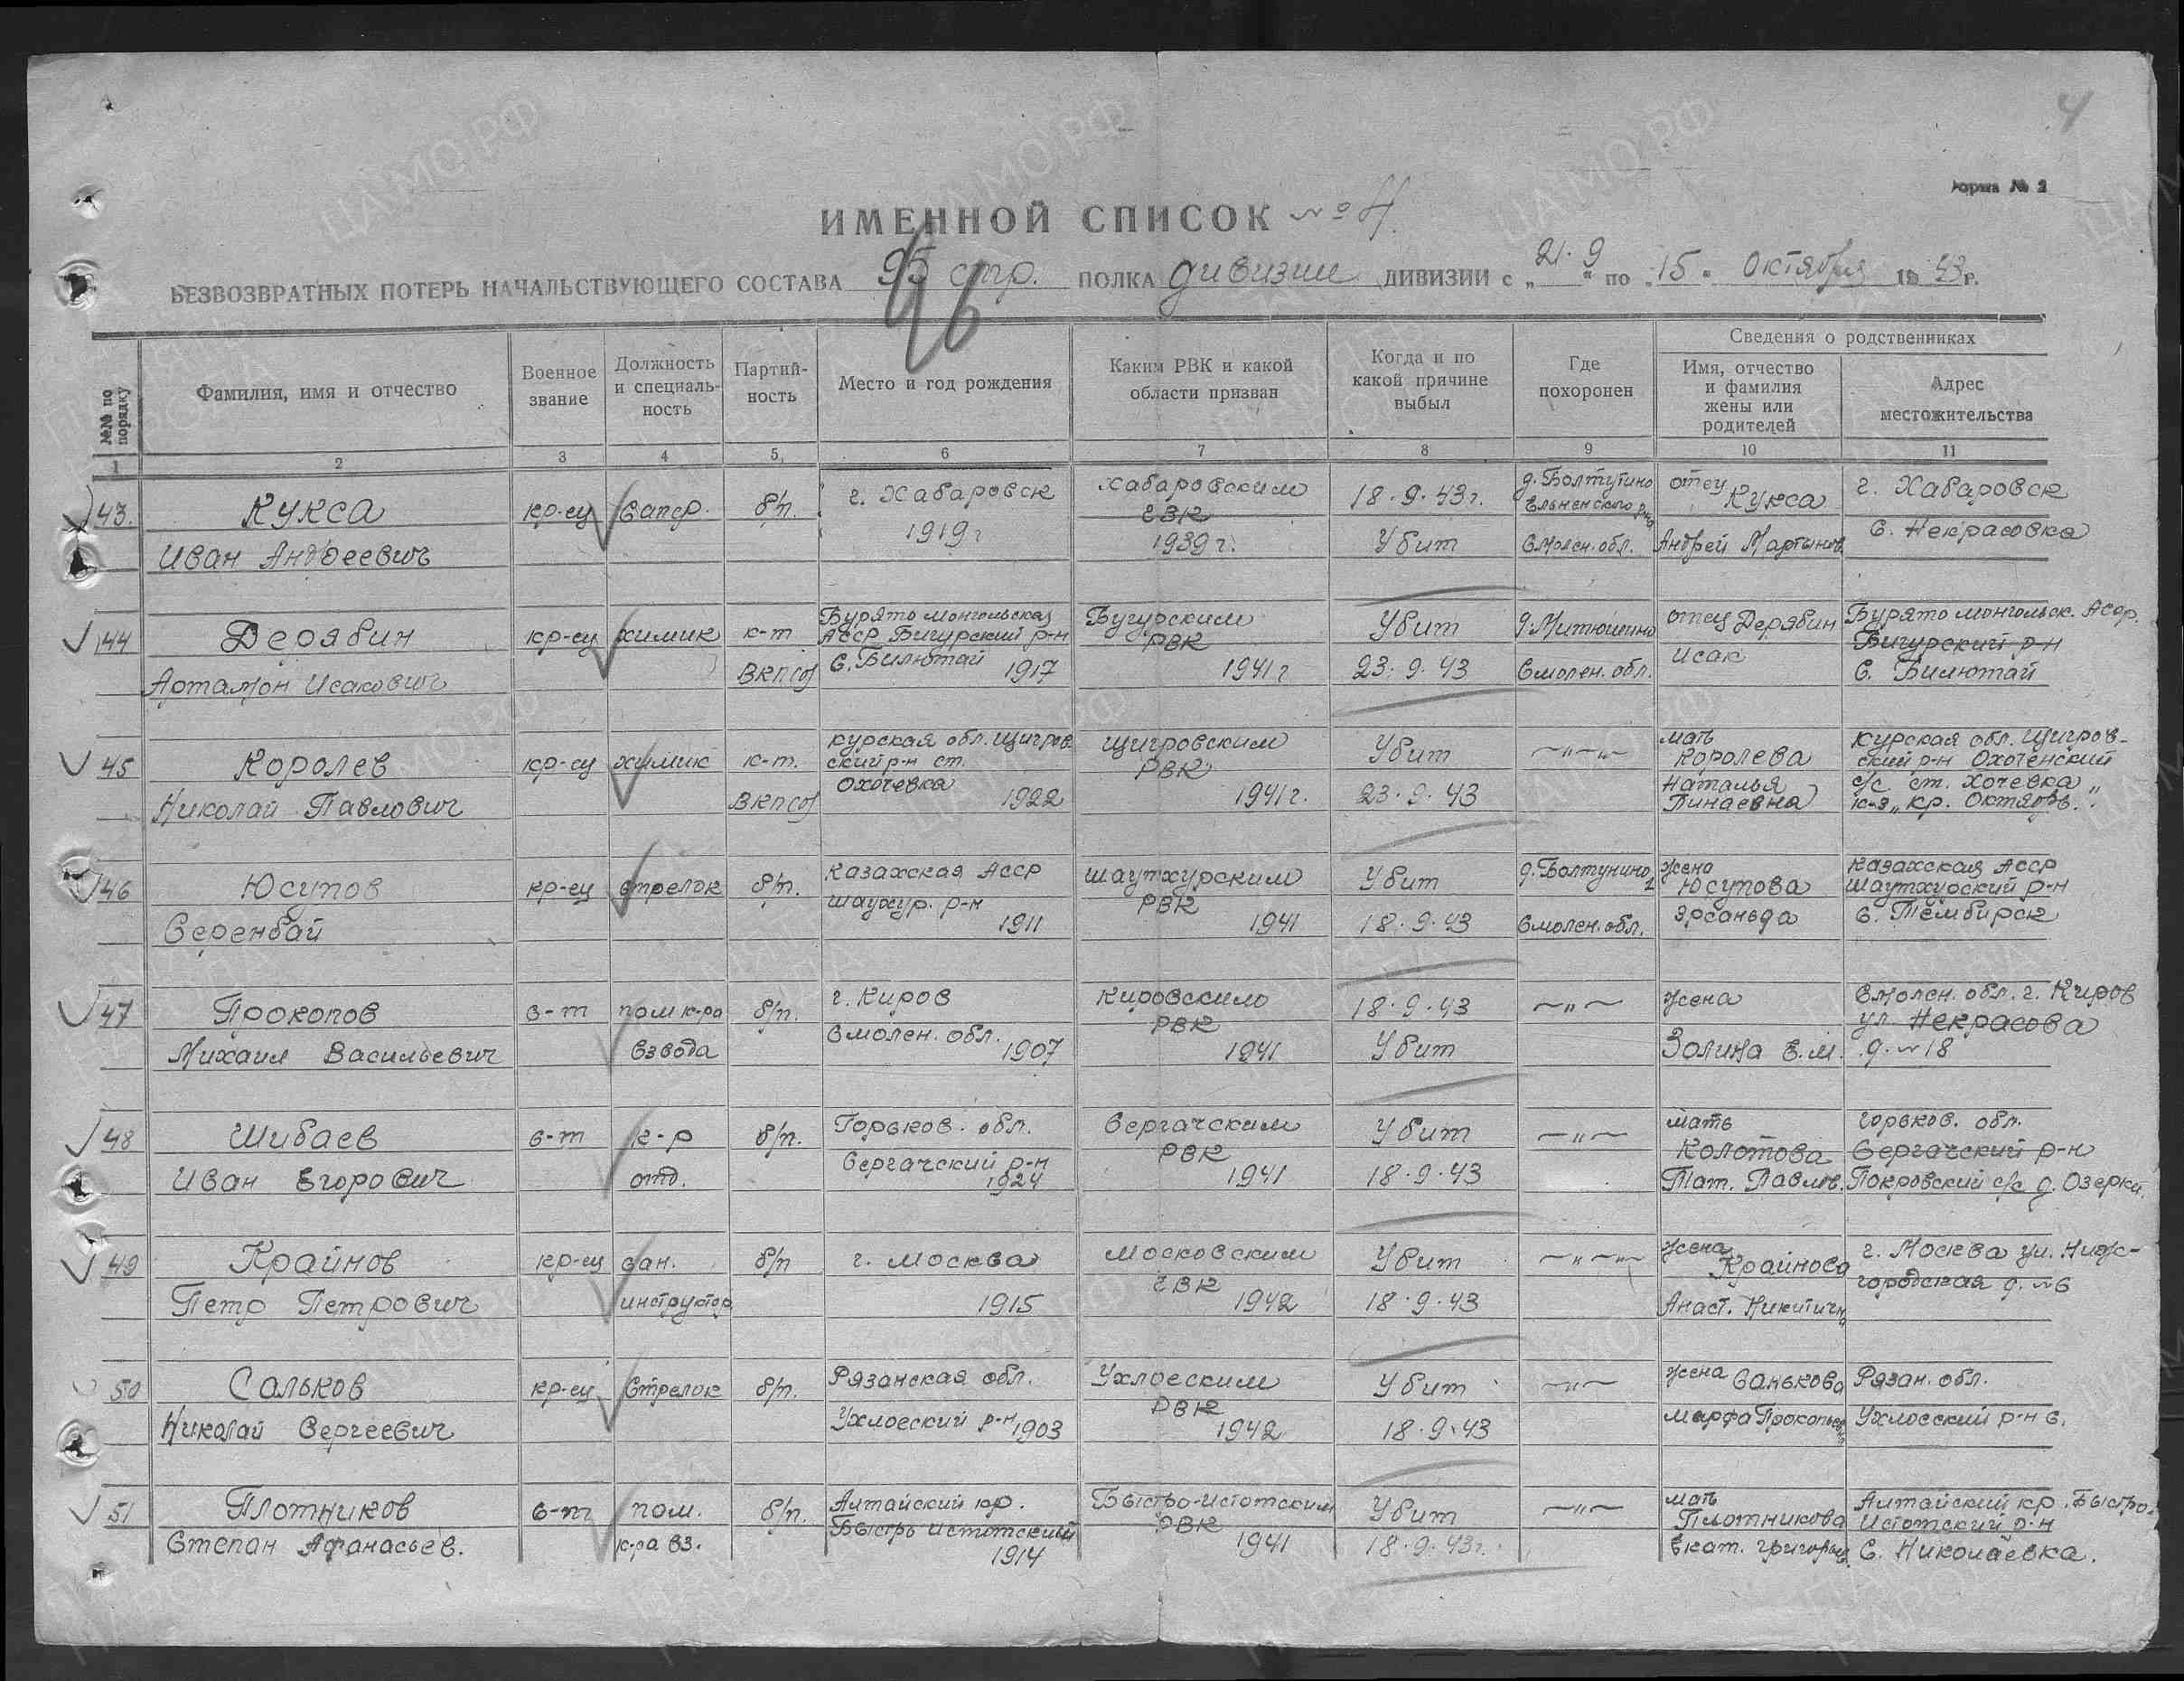 4
Форма № 2
ИМЕННОЙ СПИСОК № 4.
БЕЗВОЗВРАТНЫХ ПОТЕРЬ НАЧАЛЬСТВУЮЩЕГО СОСТАВА 95 стр. ПОЛКА дивизии ДИВИЗИИ с „21.9“ по „15“ Октября 1943 г.
96
№№ по порядку
Фамилия, имя и отчество
Военное звание
Должность и специаль-ность
Партий-ность
Место и год рождения
Каким РВК и какой области призван
Когда и по какой причине выбыл
Где похоронен
Сведения о родственниках
Имя, отчество и фамилия жены или родителей
Адрес местожительства
1 2 3 4 5 6 7 8 9 10 11
43. Кукса кр-ец Сапер. б/п. г. Хабаровск Хабаровским 18.9.43г. д. Болтутино отец Кукса г. Хабаровск
ГВК Ельненского р-на
Иван Андреевич 1919г 1939г. Убит Смолен. обл. Андрей Мартынов. с. Некрасовка
44 Дерябин кр-ец химик к-т Бурято монгольская Бугурским Убит д. Митюшино отец Дерябин Бурято монгольск. Асср.
АССР Бигурский р-н РВК Бигурский р-н
Артамон Исакович ВКП(б) С. Билютай 1917 1941г 23.9.43 Смолен. обл. Исак С. Билютай
45 Королев кр-ец химик к-т. курская обл. Щигров- Щигровским Убит —„— мать Королева Курская обл. Щигров-
ский р-н ст. РВК ский р-н Охоченский
Николай Павлович ВКП(б) Охочевка 1922 1941г. 23.9.43 Наталья с/с ст. Хочевка
к-з „Кр. Октябрь“.
46 Юсупов кр-ец стрелок б/п. Казахская Асср Шаутхурским Убит д. Болтунино жена Юсупова Казахская Асср
РВК Шаутхурский р-н
Серенбай шаухур. р-н 1911 1941 18.9.43 Смолен. обл. с. Тембирск
47 Прокопов с-т пом к-ра б/п. г. Киров Кировским 18.9.43 —„— жена Смолен. обл. г. Киров
РВК ул. Некрасова
Михаил Васильевич взвода Смолен. обл. 1907 1941 Убит Золина Е.М. д. №18
48 Шибаев с-т к-р б/п. Горьков. обл. Сергачским Убит —„— мать Колотова Горьков. обл.
РВК Сергачский р-н
Иван Егорович отд. Сергачский р-н 1924 1941 18.9.43 Тат. Павлов. Покровский с/с д. Озерки
49 Крайнов кр-ец сан. б/п г. Москва Московским Убит —„— жена Крайнова г. Москва ул. Ниж-
ГВК городская д. №6
Петр Петрович инструктор 1915 1942 18.9.43 Анаст. Никитична
50 Сальков кр-ец Стрелок б/п. Рязанская обл. Ухлоеским Убит —„— жена Санькова Рязан. обл.
РВК
Николай Сергеевич Ухлоеский р-н 1903 1942 18.9.43 Марфа Прокопьевна Ухлоеский р-н с.
51 Плотников с-т пом. б/п. Алтайский кр. Быстро-Истотским Убит —„— мать Плотникова Алтайский кр. Быстро-
РВК Истотский р-н
Степан Афанасьев. к-ра вз. Быстро Истотский 1914 1941 18.9.43г. Екат. Григорьев. С. Николаевка.